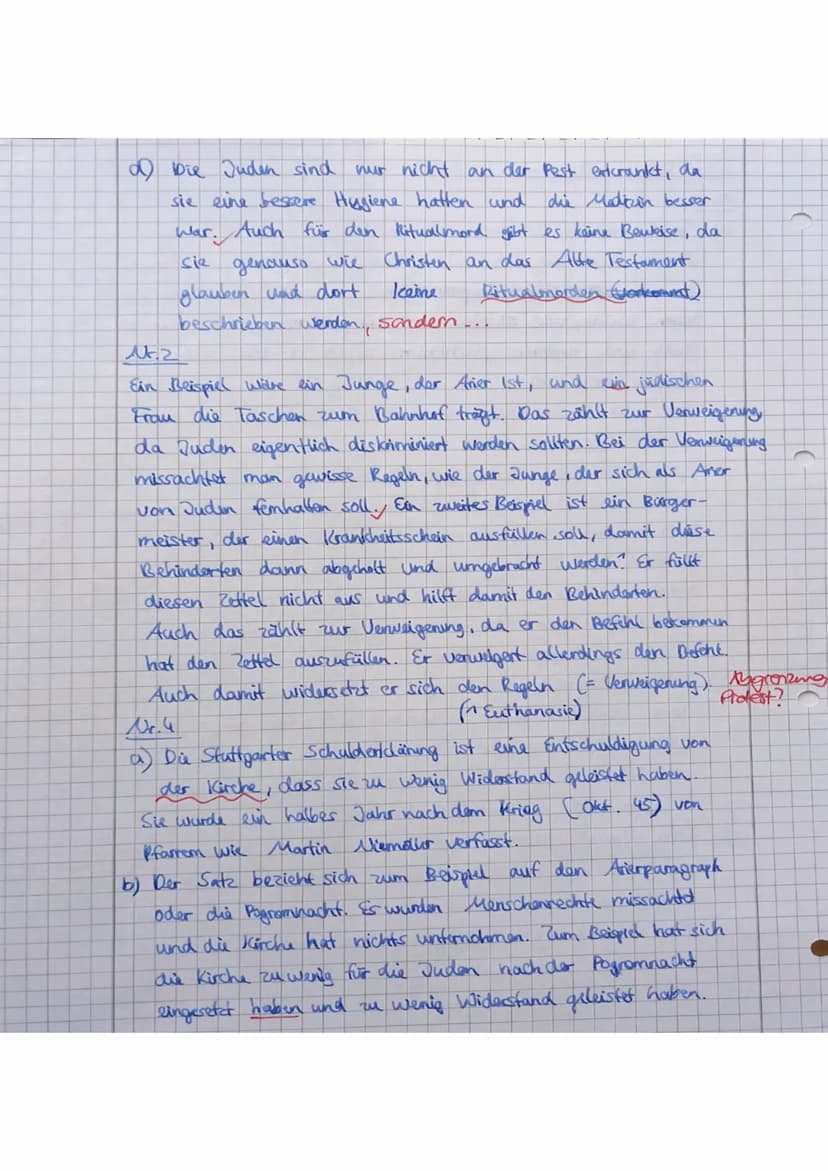 d) Die Juden sind nur nicht an der Pest erkrankt, da
sie eine bessere Hygiene hatten und die Medizin besser
war. Auch für den Ritualmord gibt es keine Beweise, da
sie genauso wie Christen an das Alte Testament
glauben und dort keine Ritualmorden (vorkommt)
beschrieben werden, sondern ...
Nr. 2
Ein Beispiel wäre ein Junge, der Arier ist, und ein jüdischen
Frau die Taschen zum Bahnhof trägt. Das zählt zur Verweigerung,
da Juden eigentlich diskriminiert werden sollten. Bei der Verweigerung
missachtet man gewisse Regeln, wie der Junge, der sich als Arier
von Juden fernhalten soll. Ein zweites Beispiel ist ein Bürger-
meister, der einen Krankheitsschein ausfüllen soll, damit diese
Behinderten dann abgeholt und umgebracht werden. Er füllt
diesen Zettel nicht aus und hilft damit den Behinderten.
Auch das zählt zur Verweigerung, da er den Befehl bekommen
hat den Zettel auszufüllen. Er verweigert allerdings den Befehl.
Auch damit widersetzt er sich den Regeln (= Verweigerung). Abgrenzung
Protest?
(↑ Euthanasie)
Nr. 4
a) Die Stuttgarter Schulderklärung ist eine Entschuldigung von
der Kirche, dass sie zu wenig Widerstand geleistet haben.
Sie wurde ein halbes Jahr nach dem Krieg (Okt. 45) von
Pfarrern wie Martin Niemöller verfasst.
b) Der Satz bezieht sich zum Beispiel auf den Arierparagraph
oder die Pogromnacht. Es wurden Menschenrechte missachtet
und die Kirche hat nichts unternohmen. Zum Beispiel hat sich
die Kirche zu wenig für die Juden nach der Pogromnacht
eingesetzt haben und zu wenig Widerstand geleistet haben.